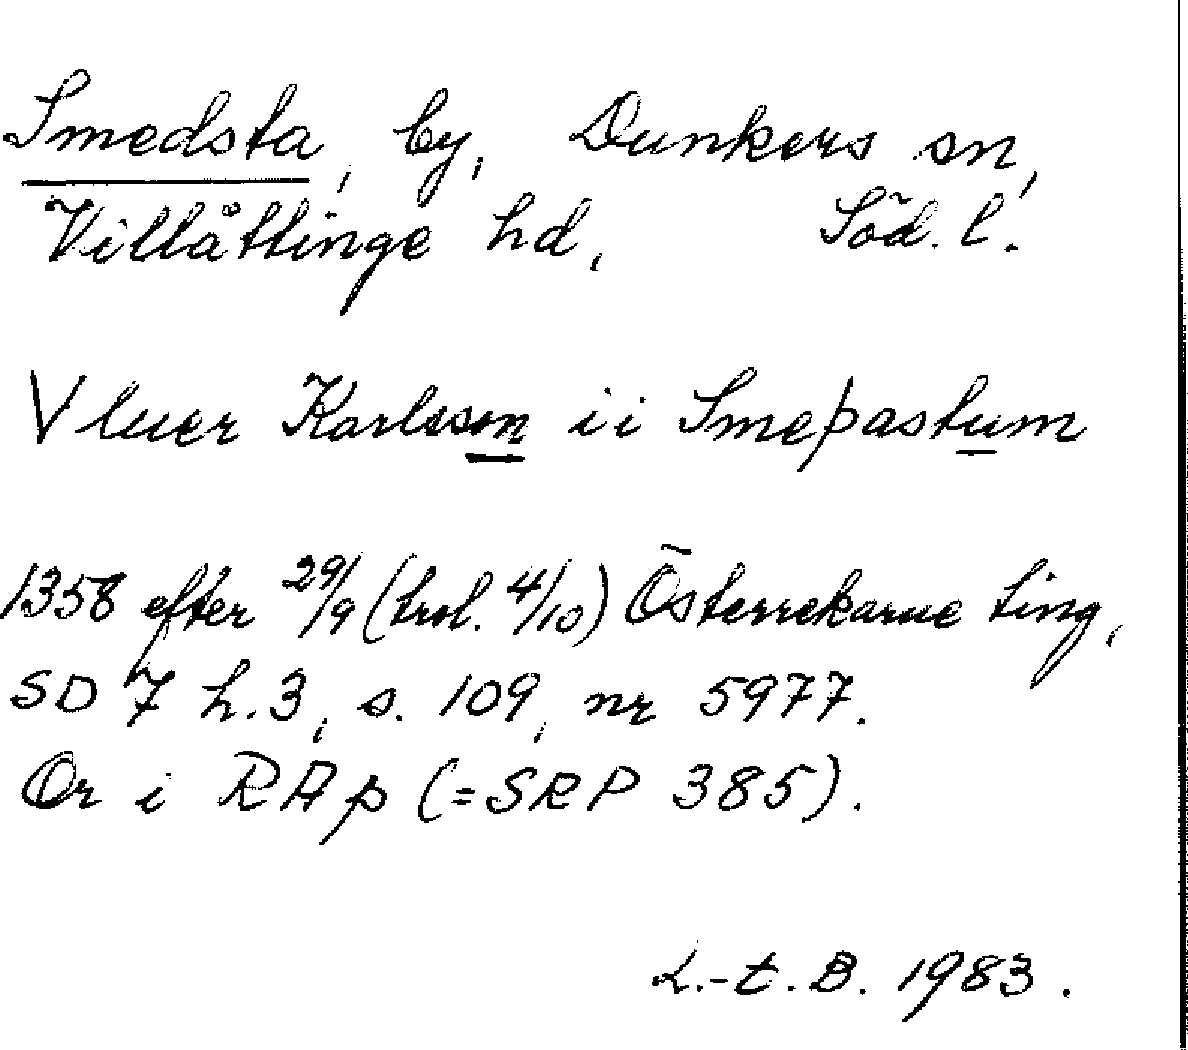 Smedsta, by, Dunkers sn,
Villåttinge hd, Söd. l.
Vluer Karlsson ii Smeþastum
1358 efter 29/9 (trol. 4/10) Österrekarne ting,
SD 7 h. 3, s. 109, nr 5977.
Or i RAp (=SRP 385).
L.-t. B. 1983.